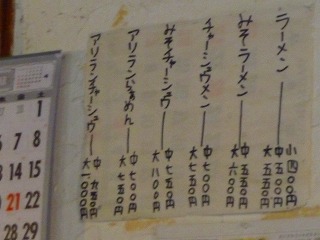 ラーメン 小四〇〇円 中五〇〇円 大五五〇円
みそラーメン 中五五〇円 大六〇〇円
チャーシュウメン 中七〇〇円 大七五〇円
みそチャーシュウ 中七五〇円 大八〇〇円
アリランらあめん 中七〇〇円 大七五〇円
アリランチャーシュウ 中九五〇円 大一〇〇〇円
金 土
1
6 7 8
13 14 15
20 21 22
28 29